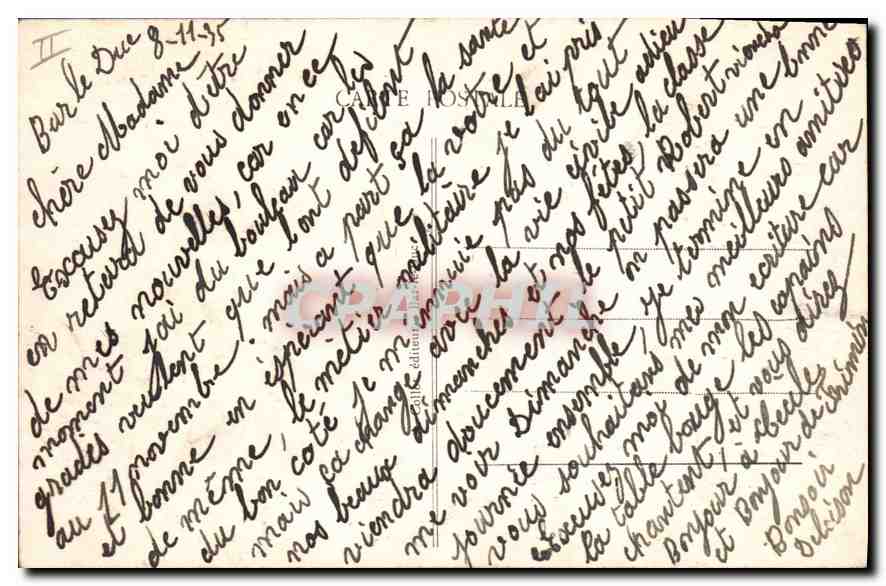 II
Bar le Duc 8-11-35
chère Madame
Excusez moi d'être
en retard de vous donner
de mes nouvelles, car en ce
moment j'ai du bouleau car les
gradés veulent que l'ont defilent
au 11 novembre. mais a part sa la santé
et bonne en espérant que la votre et
de même, le métier militaire je l'ai pris
du bon coté je m'ennuie pas du tout
mais sa change avec la vie civile adieu
nos beaux dimanches et nos fêtes, la classe
viendra doucement, le petit Robert viendra
me voir Dimanche on passera une bonne
journée ensemble, je termine en
vous souhaitans mes meilleurs amitiées
Excusez moi de mon ecriture car
la table bouge les copains
chantent, et vous direz
Bonjour à
et Bonjour de
Bonsoir
CARTE POSTALE
CARTAPHIL